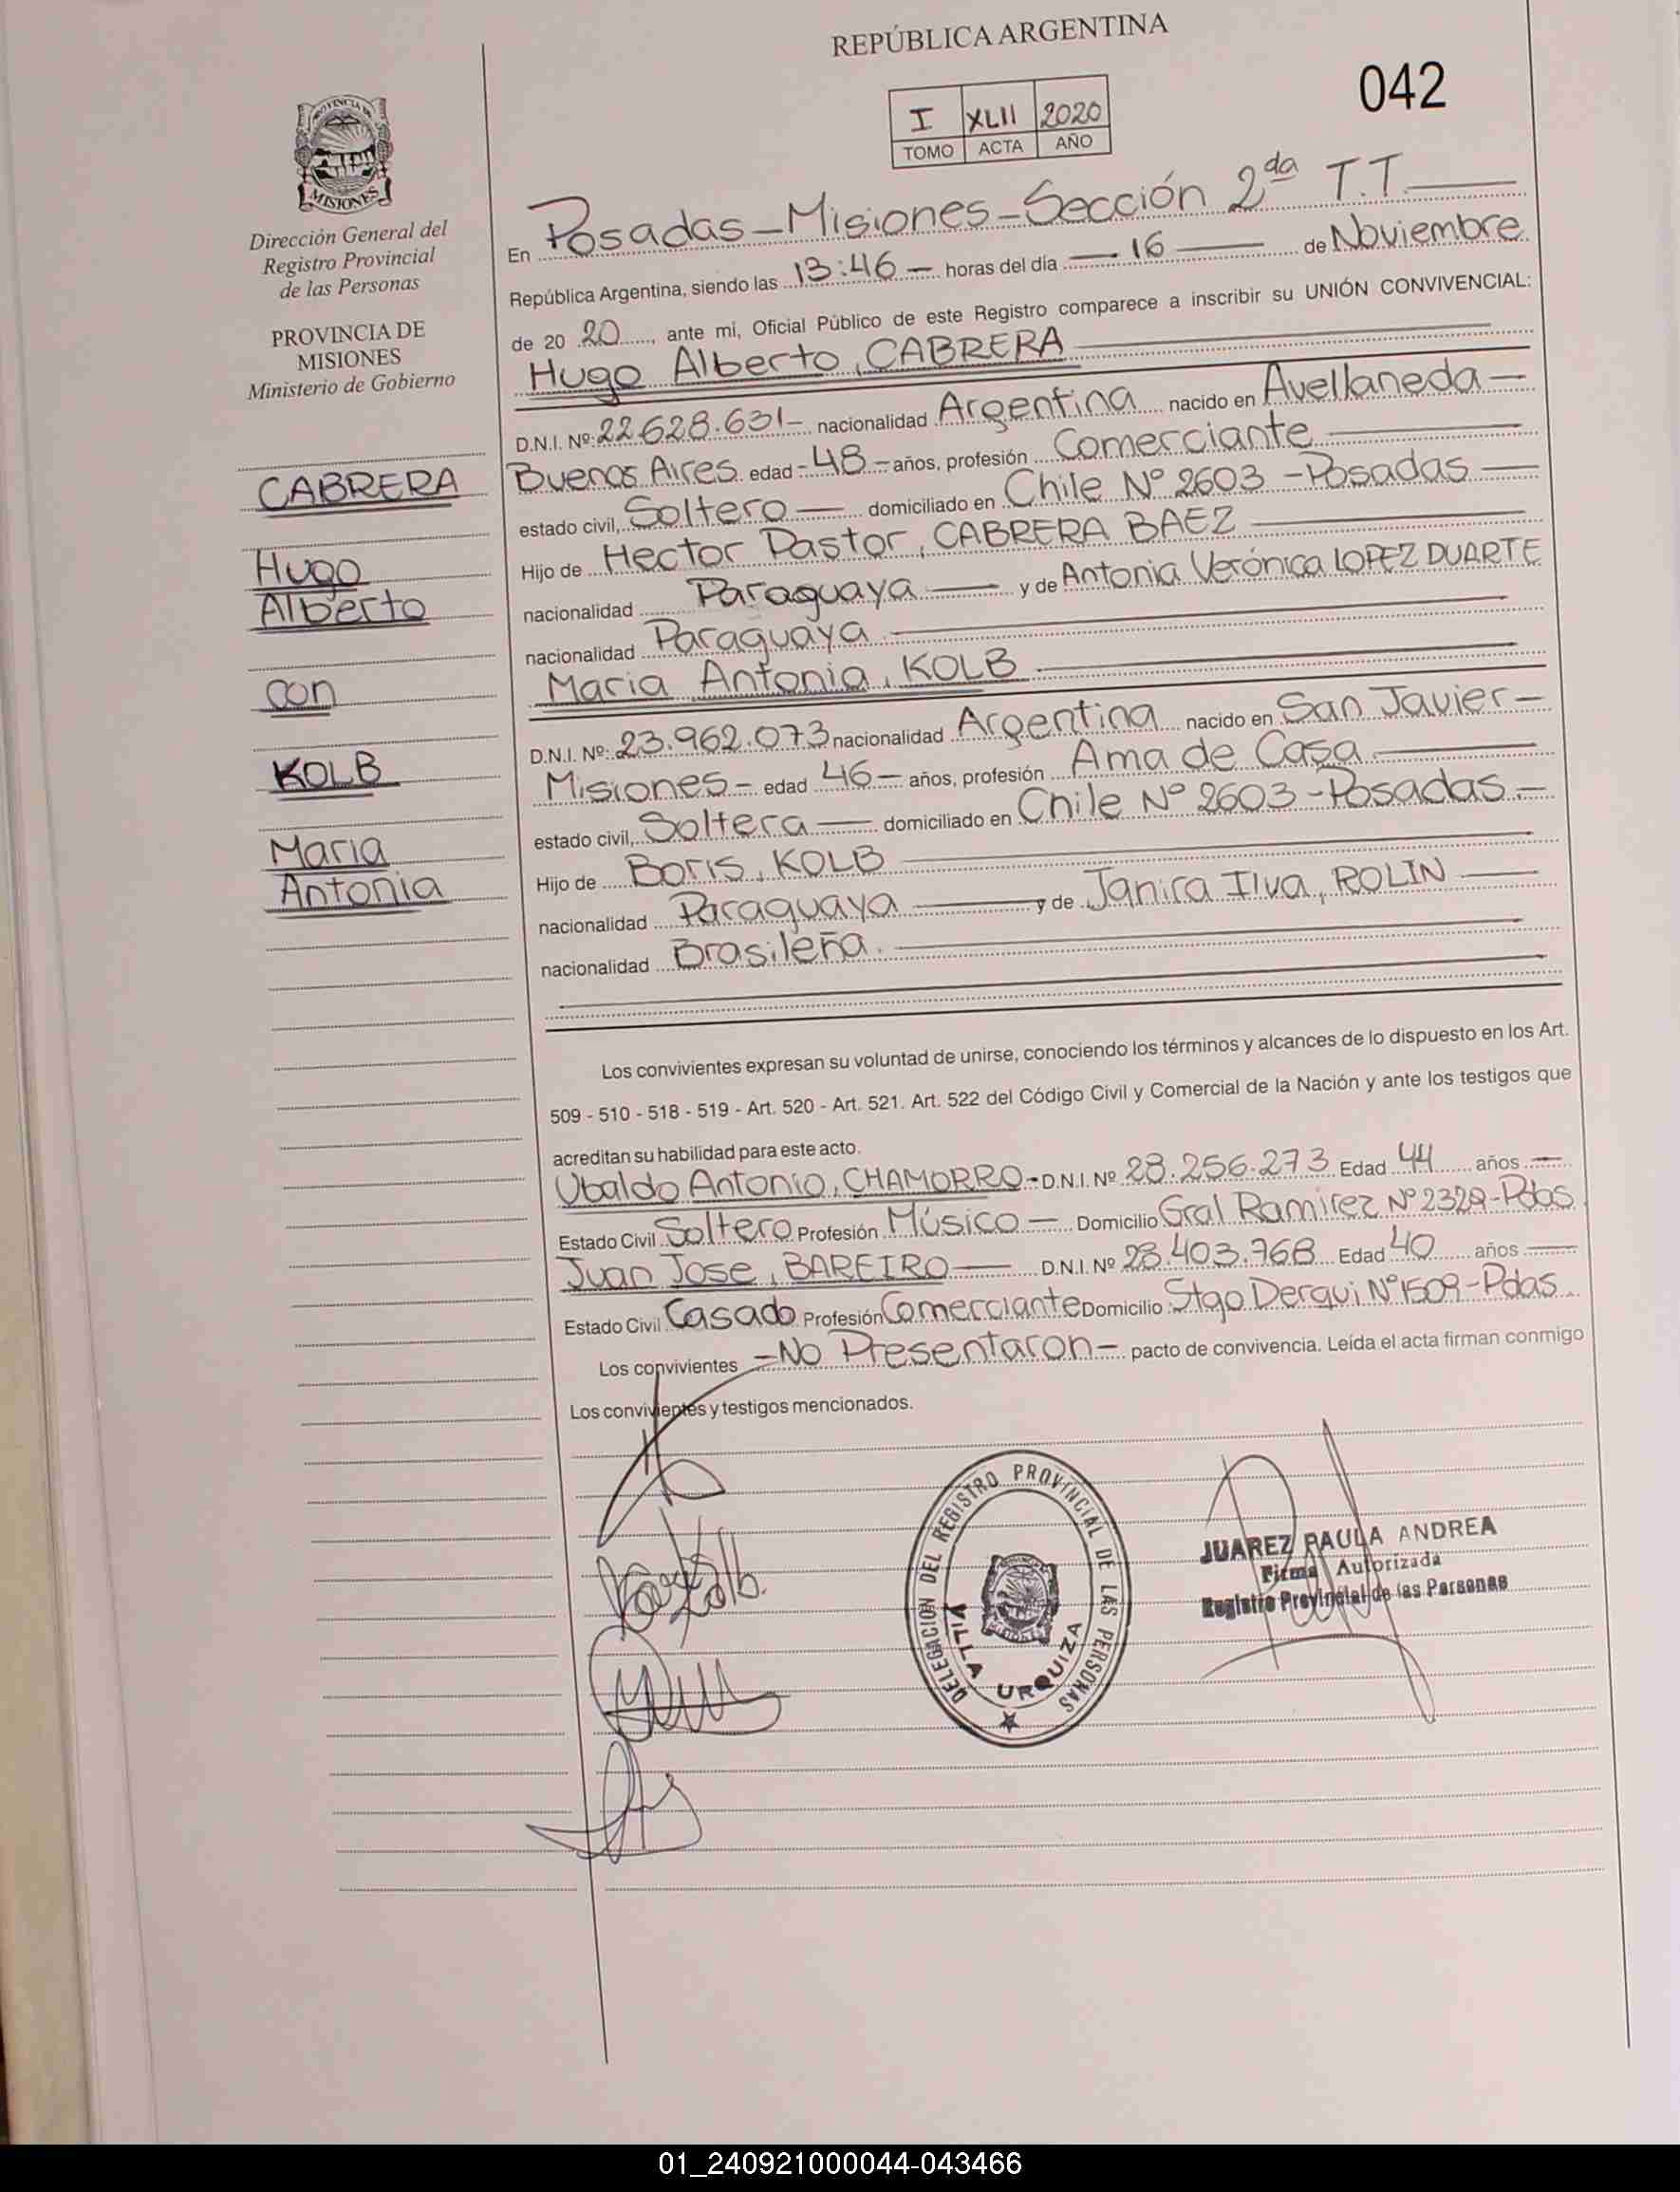 REPÚBLICA ARGENTINA
042
I XLII 2020
TOMO ACTA AÑO
PROVINCIA DE
MISIONES
Dirección General del
Registro Provincial
de las Personas
PROVINCIA DE
MISIONES
Ministerio de Gobierno
CABRERA
Hugo
Alberto
con
KOLB
Maria
Antonia
En Posadas - Misiones - Sección 2da T.T.
República Argentina, siendo las 13:46 - horas del día - 16 - de Noviembre
de 20 20, ante mi, Oficial Público de este Registro comparece a inscribir su UNIÓN CONVIVENCIAL:
Hugo Alberto, CABRERA
D.N.I. Nº: 22.628.631- nacionalidad Argentina nacido en Avellaneda -
Buenos Aires edad - 48 - años, profesión Comerciante
estado civil, Soltero - domiciliado en Chile Nº 2603 - Posadas -
Hijo de Hector Pastor, CABRERA BAEZ
nacionalidad Paraguaya - y de Antonia Verónica LOPEZ DUARTE
nacionalidad Paraguaya.
Maria Antonia, KOLB
D.N.I. Nº: 23.962.073 nacionalidad Argentina nacido en San Javier -
Misiones - edad 46 - años, profesión Ama de Casa
estado civil, Soltera - domiciliado en Chile Nº 2603 - Posadas. -
Hijo de Boris, KOLB
nacionalidad Paraguaya - y de Janira Ilva, ROLIN
nacionalidad Brasileña.
Los convivientes expresan su voluntad de unirse, conociendo los términos y alcances de lo dispuesto en los Art.
509 - 510 - 518 - 519 - Art. 520 - Art. 521. Art. 522 del Código Civil y Comercial de la Nación y ante los testigos que
acreditan su habilidad para este acto.
Ubaldo Antonio, CHAMORRO - D.N.I. Nº 28.256.273 Edad 44 años -
Estado Civil Soltero Profesión Músico - Domicilio Gral Ramirez Nº 2329 - Pdas
Juan Jose, BAREIRO - D.N.I. Nº 28.403.768 Edad 40 años -
Estado Civil Casado Profesión Comerciante Domicilio Stgo Derqui Nº 1509 - Pdas
Los convivientes - No Presentaron - pacto de convivencia. Leída el acta firman conmigo
Los convivientes y testigos mencionados.
DELEGACION DEL REGISTRO PROVINCIAL DE LAS PERSONAS
VILLA URQUIZA
JUAREZ PAULA ANDREA
Firma Autorizada
Registro Provincial de las Personas
01_240921000044-043466